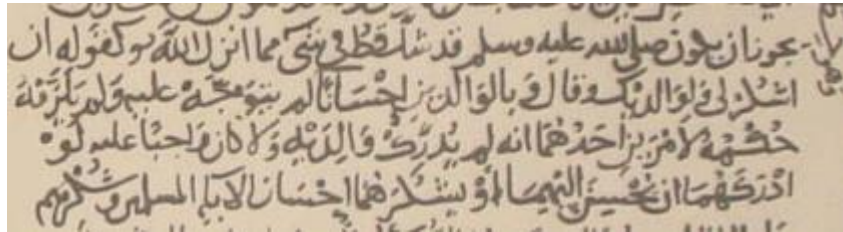 يجوز ان يكون صلى الله عليه وسلم قد شك قط في شيء مما انزل الله هو كقوله ان
اشكر لي ولوالديك وقال وبالوالدين احسانا لم يتوجه عليه ولم يلزمه
حكمه لامرين احدهما انه لم يدرك والديه ولا كان واجبا عليه لو
ادركهما ان يحسن اليهما او يشكرهما احسان الاباء المسلمين وشكرهم